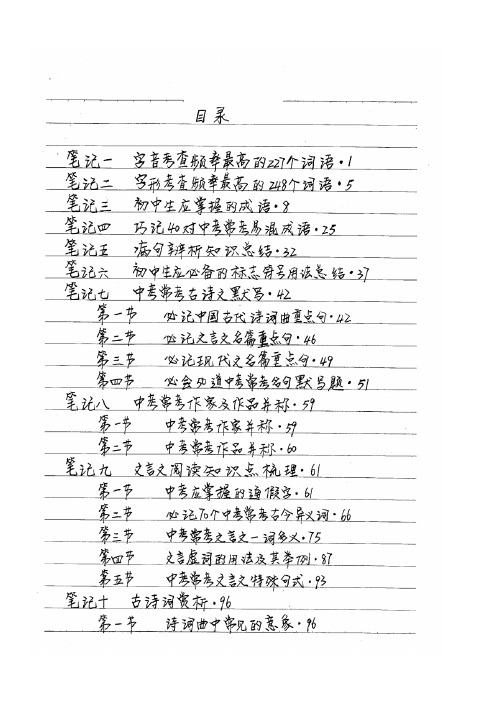 目录
笔记一 字音考查频率最高的227个词语·1
笔记二 字形考查频率最高的248个词语·5
笔记三 初中生应掌握的成语·8
笔记四 巧记40对中考常考易混成语·25
笔记五 病句辨析知识总结·32
笔记六 初中生应必备的标志符号用法总结·37
笔记七 中考常考古诗文默写·42
第一节 必记中国古代诗词曲重点句·42
第二节 必记文言文名篇重点句·46
第三节 必记现代文名篇重点句·49
第四节 必会50道中考常考名句默写题·51
笔记八 中考常考作家及作品并称·59
第一节 中考常考作家并称·59
第二节 中考常考作品并称·60
笔记九 文言文阅读知识点梳理·61
第一节 中考应掌握的通假字·61
第二节 必记70个中考常考古今异义词·66
第三节 中考常考文言文一词多义·75
第四节 文言虚词的用法及其举例·87
第五节 中考常考文言文特殊句式·93
笔记十 古诗词赏析·96
第一节 诗词曲中常见的意象·96